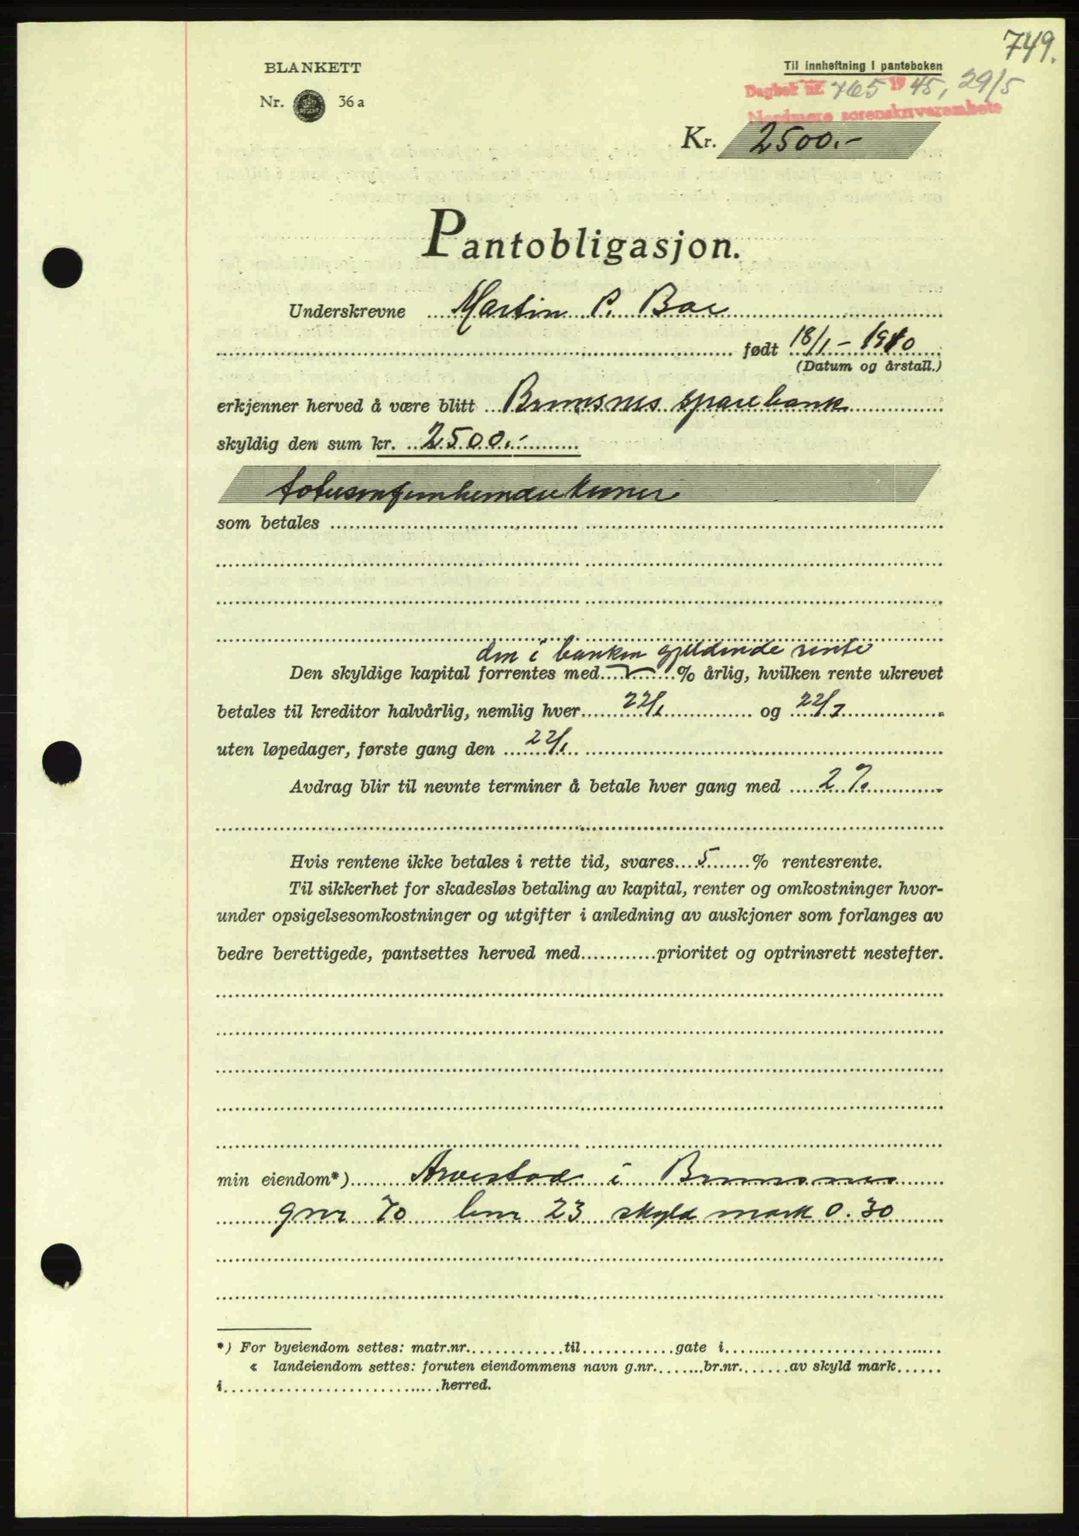 749.
BLANKETT
Til innheftning i panteboken
Nr. 36 a
Dagbok nr. 765 1945, 29/5
Nordmøre sorenskriverembete
Kr. 2500.-
Pantobligasjon.
Underskrevne Martin P. Boe
født 18/1 - 1910
(Datum og årstall.)
erkjenner herved å være blitt Bremsnes sparebank
skyldig den sum kr. 2500.-
totusenfemhundre kroner
som betales
den i banken gjeldende rente
Den skyldige kapital forrentes med % årlig, hvilken rente ukrevet
betales til kreditor halvårlig, nemlig hver 22/1 og 22/7
uten løpedager, første gang den 22/1
Avdrag blir til nevnte terminer å betale hver gang med 2 %
Hvis rentene ikke betales i rette tid, svares 5 % rentesrente.
Til sikkerhet for skadesløs betaling av kapital, renter og omkostninger hvor-
under opsigelsesomkostninger og utgifter i anledning av auskjoner som forlanges av
bedre berettigede, pantsettes herved med prioritet og optrinsrett nestefter.
min eiendom*) Arvestad i Bremsnes
gnr 70 bnr 23 skyld mark 0.30
*) For byeiendom settes: matr.nr. til gate i
« landeiendom settes: foruten eiendommens navn g.nr. br.nr. av skyld mark
i herred.